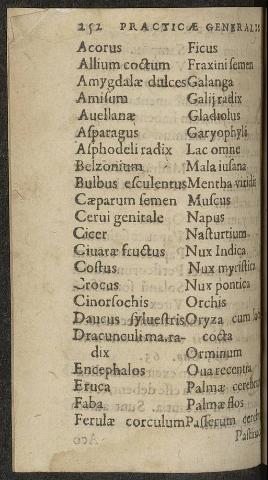 252 PRACTICÆ GENERALIS
Acorus
Allium coctum
Amygdalæ dulces
Amisum
Auellanæ
Asparagus
Asphodeli radix
Belzonium
Bulbus esculentus
Cæparum semen
Cerui genitale
Cicer
Ciuaræ fructus
Costus
Crocus
Cinorsochis
Daucus sylvestris
Dracunculi ma.ra-
dix
Encephalos
Eruca
Faba
Ferulæ corculum
Ficus
Fraxini semen
Galanga
Galij radix
Gladiolus
Garyophyli
Lac omne
Mala iusana
Mentha viridis
Muscus
Napus
Nasturtium
Nux Indica
Nux myristica
Nux pontica
Orchis
Oryza cum
cocta
Orminum
Oua recentia
Palmæ
Palmæ flos
Passerum